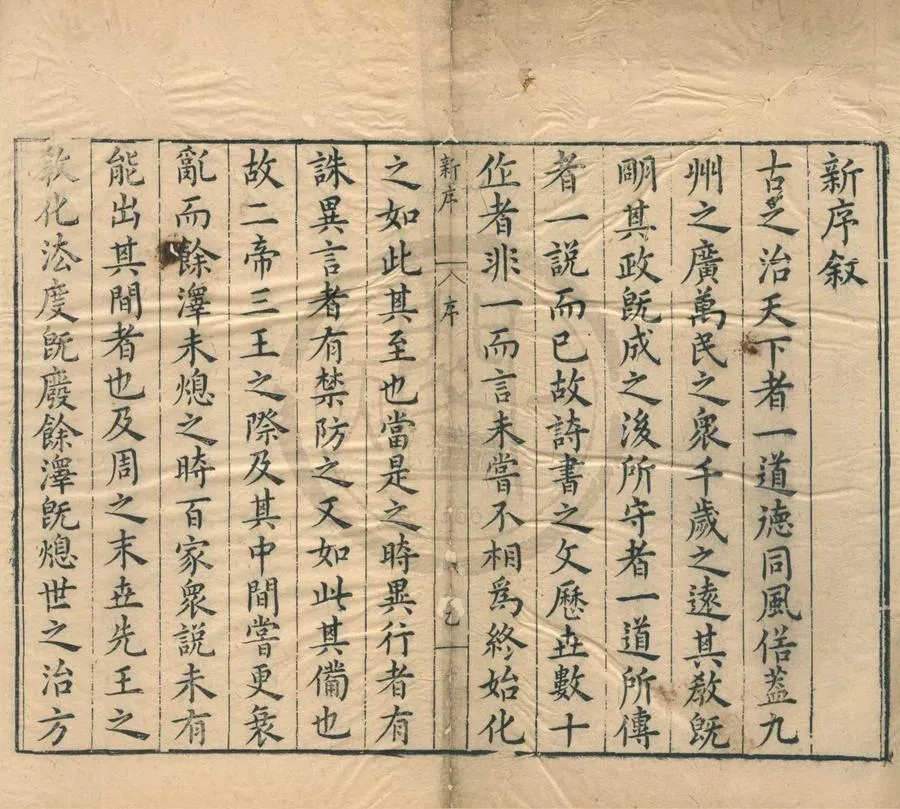 新序叙
古之治天下者一道德同風俗蓋九
州之廣萬民之衆千歲之遠其教既
明其政既成之後所守者一道所傳
者一說而已故詩書之文歷世數十
作者非一而言未嘗不相爲終始化
新序 序 乙
之如此其至也當是之時異行者有
誅異言者有禁防之又如此其備也
故二帝三王之際及其中間嘗更衰
亂而餘澤未熄之時百家衆說未有
能出其間者也及周之末世先王之
敎化法度既廢餘澤既熄世之治方